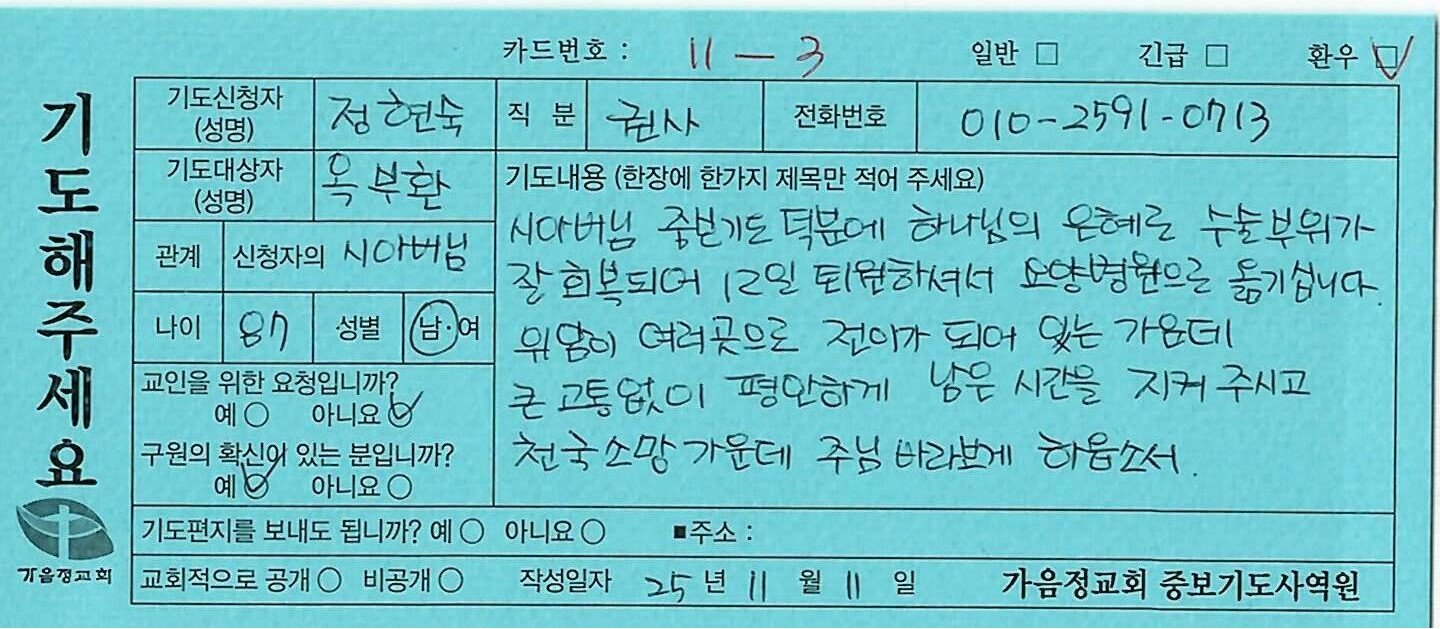 카드번호 : 11 - 3 일반 □ 긴급 □ 환우 ☑
기도해주세요
기도신청자 (성명) 정현숙 직 분 권사 전화번호 010-2591-0713
기도대상자 (성명) 옥부환
관계 신청자의 시아버님
나이 87 성별 남·여
교인을 위한 요청입니까?
예 ○ 아니요 ☑
구원의 확신이 있는 분입니까?
예 ☑ 아니요 ○
기도내용 (한장에 한가지 제목만 적어 주세요)
시아버님 중보기도 덕분에 하나님의 은혜로 수술부위가
잘 회복되어 12일 퇴원하셔서 요양병원으로 옮기십니다.
위암이 여러곳으로 전이가 되어 있는 가운데
큰 고통없이 평안하게 남은 시간을 지켜 주시고
천국소망 가운데 주님 바라보게 하옵소서.
기도편지를 보내도 됩니까? 예 ○ 아니요 ○ ■주소 :
교회적으로 공개 ○ 비공개 ○ 작성일자 25 년 11 월 11 일 가음정교회 중보기도사역원
가음정교회